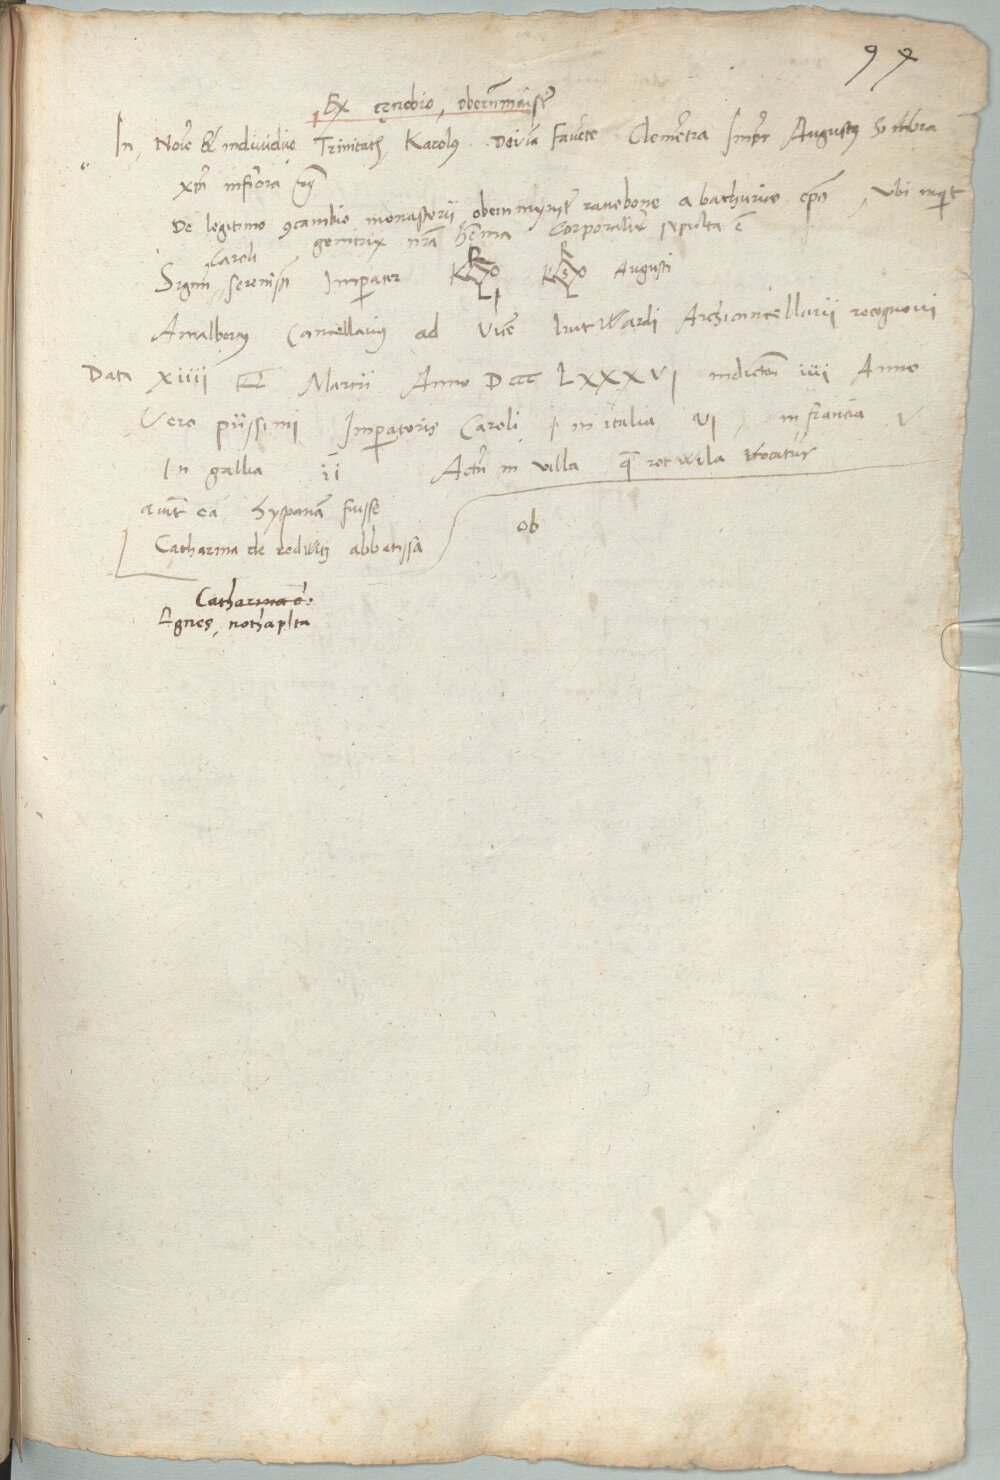 97
Ex cęnobio obernmaisẽ
In Noīe & individue Trinitatis Karolus Devīa faveñte Clemeñtia Imp̃r Augustus
xpi
De legitimo ꝯcambio monasterii obernmynsẽ ratesbone a bathurico ep̄o ubi inq̇t
genitrix nr̄a hēma corporaliẽ sepulta ē
Caroli
Sigm̄ serenissi Imp̄ator K R O L K R O L Augusti
Amalbertus Cancellarius ad Vicē Liut Wardi Archicancellarii recognovi
Data XIIII Martii Anno D ccc LXXXVI indictōe iiii Anno
Vero piissimi Imp̄atoris Caroli in italia VI in francia V
In gallia ii Actū in villa q̄ rotwila vocatur
aiūt eā hyspanā fuisse
Catharina de redwitz abbatissa
ob
Catharina
Agnes nothaplta